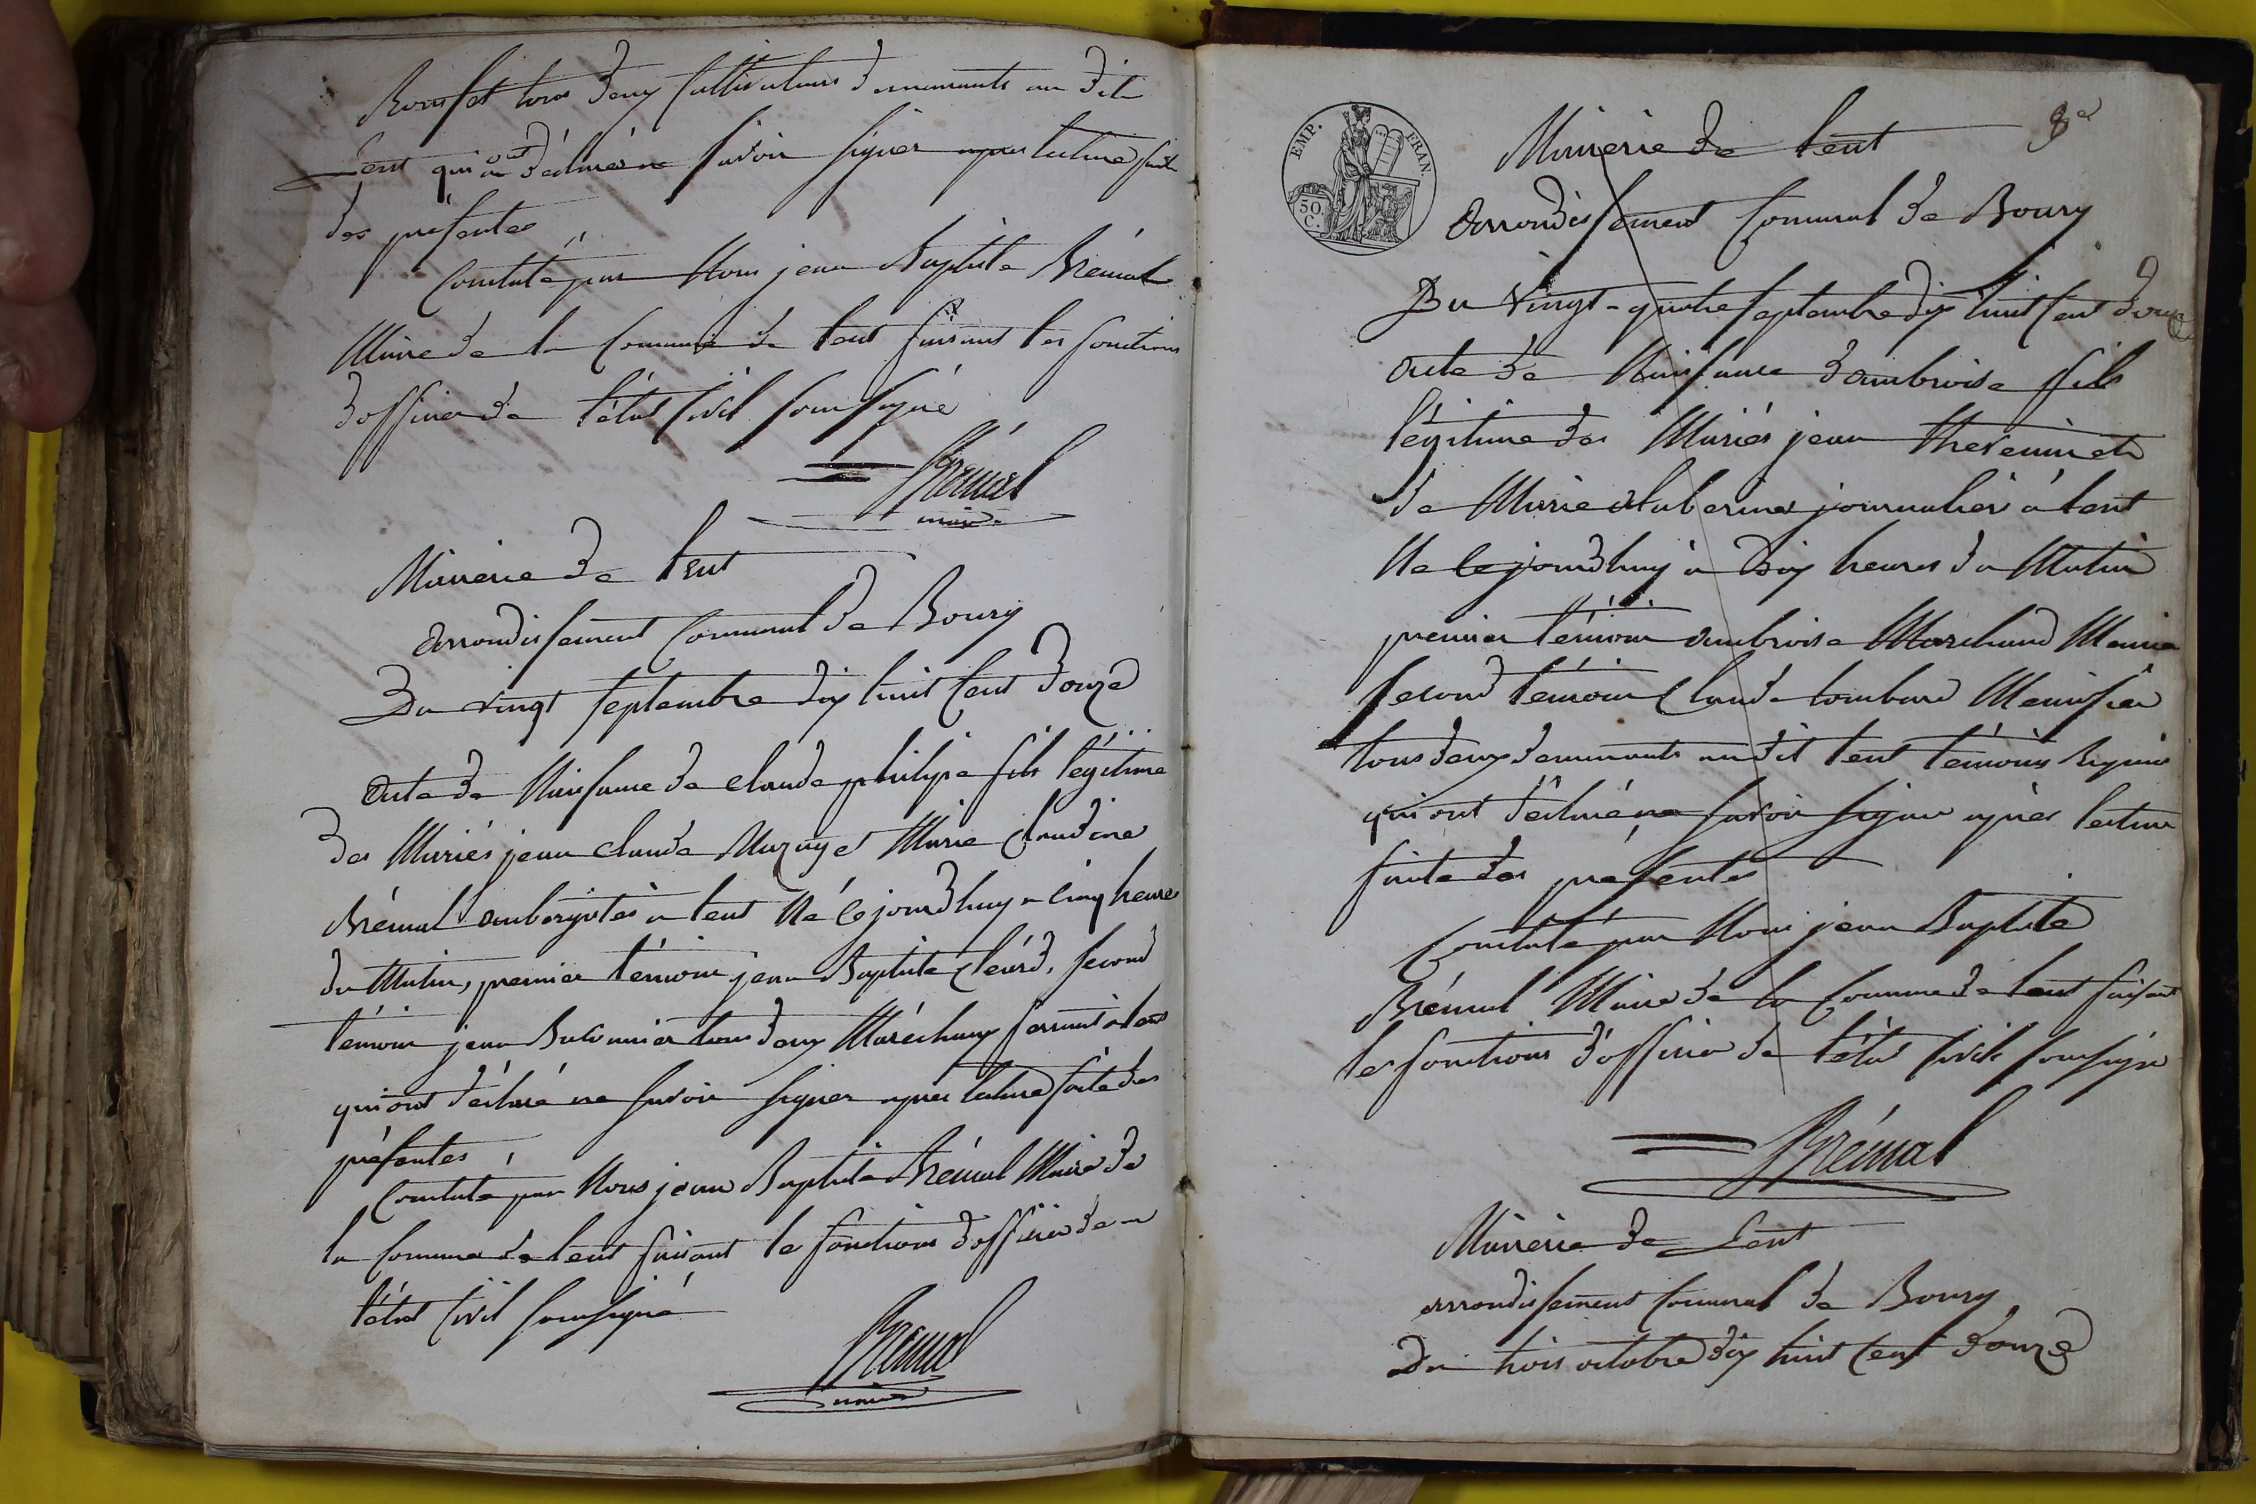 tous deux Cultivateurs demeurants au dit
Lent qui ont déclaré ne savoir signer apres lecture faite
des présentes
Constaté par Nous jean Baptiste Brémal
Maire de la Commune de lent faisant les fonctions
d'officier de l'état Civil soussigné
Brémal
maire
Mairerie de lent
arrondissement Communal de Bourg
Du vingt septembre dix huit Cent douze
acte de Naissance de claude philipe fils légitime
des Mariés jean claude Mazuy et Marie Claudine
Brémal aubergistes a lent Né Cejourdhuy a Cinq heures
du Matin, premier témoin jean Baptiste, second
témoin jean tous deux Maréchaux ferrant a lent
qui ont déclaré ne savoir signer apres lecture faite des
présentes
Constaté par Nous jean Baptiste Brémal Maire de
la Commune de lent faisant les fonctions d'officier de
l'état Civil soussigné
Brémal
maire
EMP. FRAN.
50
C.
8e
Mairerie de lent
arrondissement Communal de Bourg
Du Vingt-quatre septembre dix huit Cent douze
acte de Naissance d'ambroise fils
légitime des Mariés jean thevenin et
de Marie journalier à lent
Né Cejourdhuy a dix heures du Matin
premier témoin ambroise Marchand
second témoin Claude Menuisier
tous deux demeurants audit lent témoins Requis
qui ont déclaré ne savoir signer après lecture
faite des présentes
Constaté par Nous jean Baptiste
Brémal Maire de la Commune de lent faisant
les fonctions d'officier de l'état Civil soussigné
Brémal
Mairerie de Lent
arrondissement Communal de Bourg
Du trois octobre dix huit Cent douze